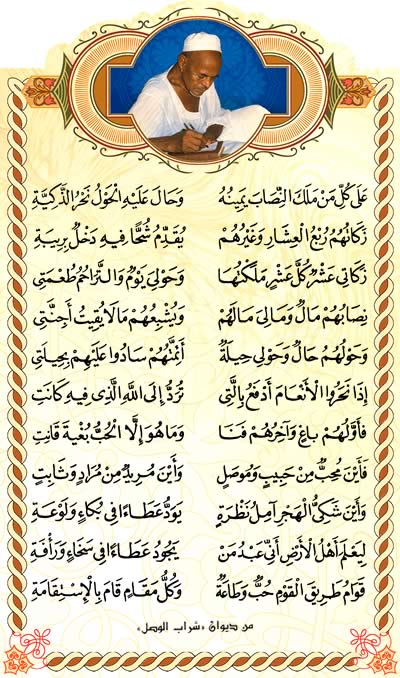 عَلَى كُلِّ مَنْ مَلَكَ النِّصَابَ يَمِينُهُ وَحَالَ عَلَيْهِ الْحَوْلُ نَحْرُ الذَّكِيَّةِ
زَكَاتُهُمُ رُبْعُ الْعِشَارِ وَغَيْرُهُمْ يُقَدِّمُ شُحًّا فِيهِ دَخْلٌ بِرِيبَةِ
زَكَاتِي عَشْرٌ كُلَّ عَشْرٍ مَلَكْتُهَا وَحَوْلِيَ يَوْمٌ وَالتَّرَاحُمُ طُعْمَتِي
نِصَابُهُمُ مَالٌ وَمَالِيَ مَالَهُمْ وَيُشْبِعُهُمْ مَالَا يُقِيتُ أَجِنَّتِي
وَحَوْلُهُمُ حَالٌ وَحَوْلِيَ حِيلَةٌ أَئِمَّتُهُمْ سَادُوا عَلَيْهِمْ بِحِيلَتِي
إِذَا نَحَرُوا الْأَنْعَامَ أَدْفَعُ بِالَّتِي تُرَدُّ إِلَى اللَّهِ الَّذِي فِيهِ كَانَتِ
فَأَوَّلُهُمْ بَاغٍ وَآخِرُهُمْ فَنَا وَمَا هُوَ إِلَّا الْحُبُّ بُغْيَةَ قَانِتِ
فَأَيْنَ مُحِبٌّ مِنْ حَبِيبٍ وَمُوصَلٍ وَأَيْنَ مُرِيدٌ مِنْ مُرَادٍ وَثَابِتِ
وَأَيْنَ شَكِيُّ الْهَجْرِ آمِلُ نَظْرَةٍ يَوَدُّ عَطَاءً فِي بُكَاءٍ وَلَوْعَةِ
لِيَعْلَمَ أَهْلُ الْأَرْضِ أَنِّي عَبْدُ مَنْ يَجُودُ عَطَاءً فِي سَخَاءٍ وَرَأْفَةِ
قَوَامُ طَرِيقِ الْقَوْمِ حُبٌّ وَطَاعَةٌ وَكُلُّ مَقَامٍ قَامَ بِالْإِسْتِقَامَةِ
من ديوان «شراب الوصل»